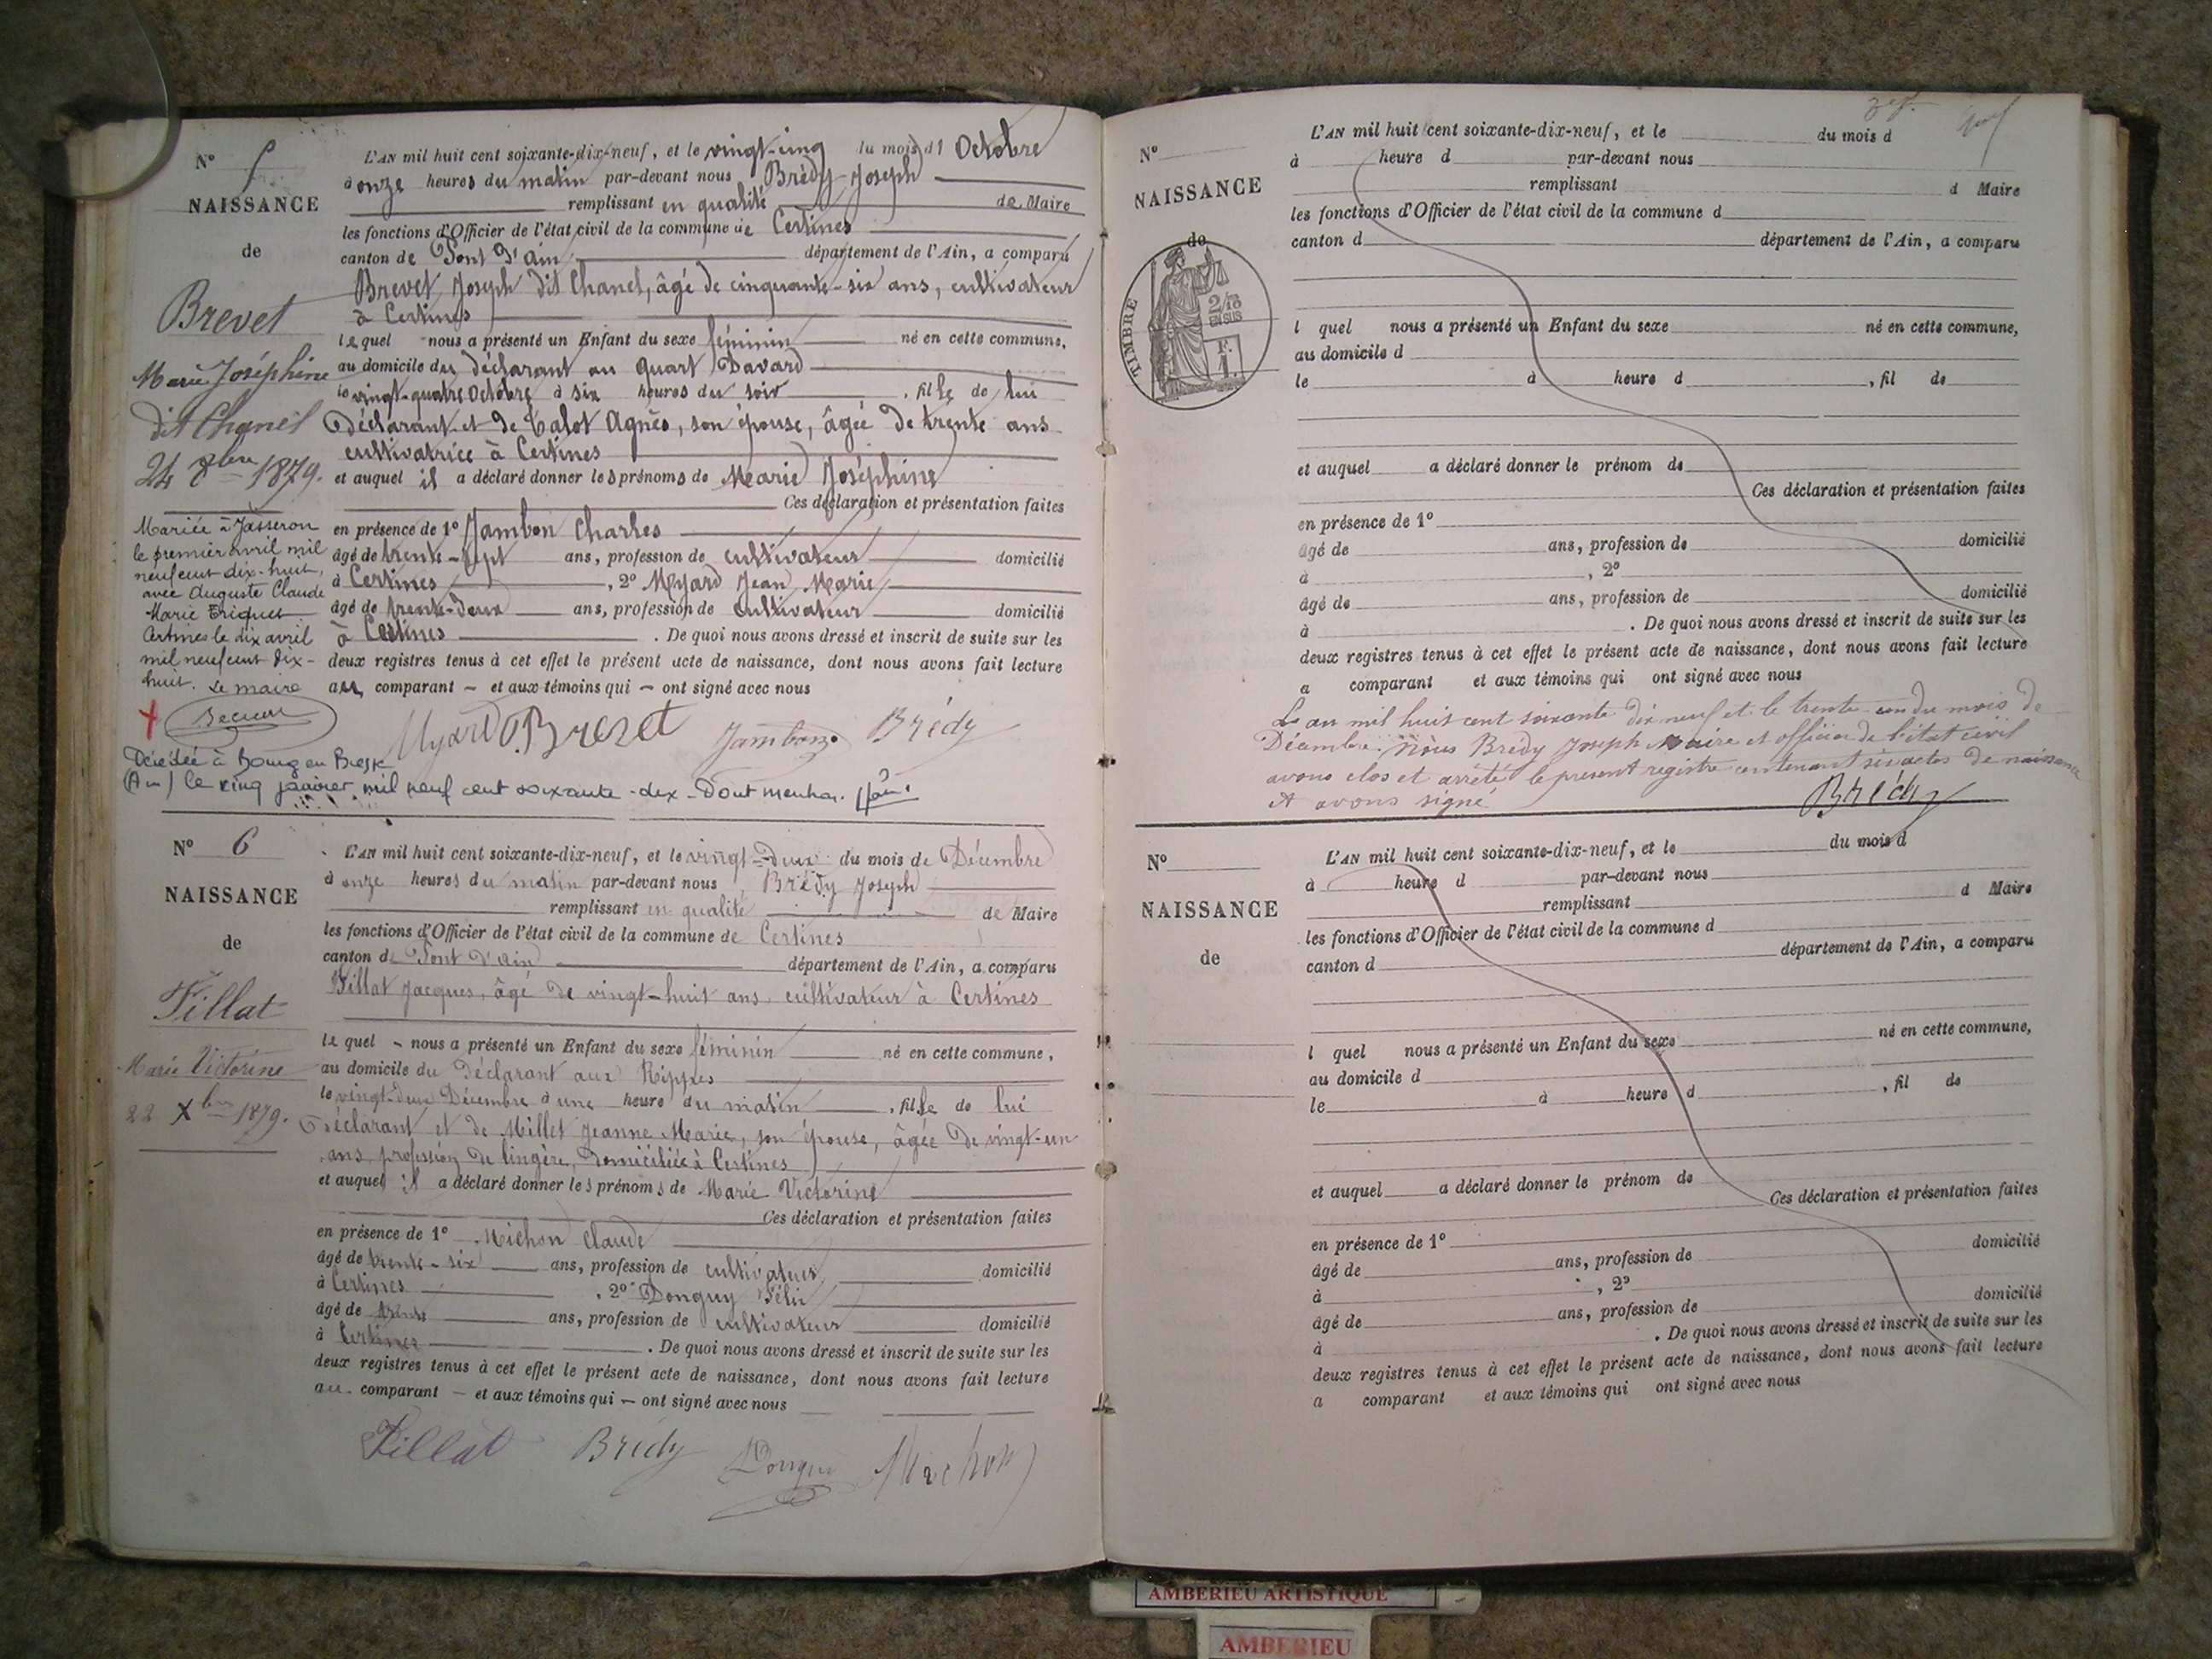 N° 5
NAISSANCE
de
Brevet
Marie Joséphine
dit Chanel
24 8bre 1879.
Mariée à Jasseron
le premier avril mil
neuf cent dix-huit,
avec Auguste Claude
Marie
Certines le dix avril
mil neuf cent dix-
huit. Le maire
Décédée à Bourg en Bresse
(Ain) le cinq janvier mil neuf cent soixante-dix - Dont mention.
L'AN mil huit cent soixante-dix-neuf, et le vingt-cinq du mois d'Octobre
à onze heures du matin par-devant nous Brédy Joseph
remplissant en qualité de Maire
les fonctions d'Officier de l'état civil de la commune de Certines
canton de Pont d'ain département de l'Ain, a comparu
Brevet Joseph dit Chanel, âgé de cinquante-six ans, cultivateur
à Certines
lequel nous a présenté un Enfant du sexe féminin né en cette commune,
au domicile du déclarant au quart Davard
le vingt-quatre Octobre à six heures du soir, fille de lui
Déclarant et de Calot Agnès, son épouse, âgée de trente ans
cultivatrice à Certines
et auquel il a déclaré donner les prénoms de Marie Joséphine
Ces déclaration et présentation faites
en présence de 1° Jambon Charles
âgé de trente-sept ans, profession de cultivateur domicilié
à Certines, 2° Myard Jean Marie
âgé de trente-deux ans, profession de cultivateur domicilié
à Certines. De quoi nous avons dressé et inscrit de suite sur les
deux registres tenus à cet effet le présent acte de naissance, dont nous avons fait lecture
au comparant – et aux témoins qui – ont signé avec nous
Myard Brevet Jambon Brédy
N° 6
NAISSANCE
de
Tillat
Marie Victorine
22 Xbre 1879.
L'AN mil huit cent soixante-dix-neuf, et le vingt-deux du mois de Décembre
à onze heures du matin par-devant nous, Brédy Joseph
remplissant en qualité de Maire
les fonctions d'Officier de l'état civil de la commune de Certines
canton de Pont d'Ain département de l'Ain, a comparu
Tillat Jacques, âgé de vingt-huit ans, cultivateur à Certines
lequel – nous a présenté un Enfant du sexe féminin né en cette commune,
au domicile du Déclarant aux Rippes
le vingt-deux Décembre à une heure du matin, fille de lui
Déclarant et de Millet Jeanne Marie, son épouse, âgée de vingt-un
ans, profession de lingère, domiciliée à Certines
et auquel il a déclaré donner les prénoms de Marie Victorine
Ces déclaration et présentation faites
en présence de 1° Michon Claude
âgé de trente-six ans, profession de cultivateur domicilié
à Certines, 2° Donguy Félix
âgé de trente ans, profession de cultivateur domicilié
à Certines. De quoi nous avons dressé et inscrit de suite sur les
deux registres tenus à cet effet le présent acte de naissance, dont nous avons fait lecture
au comparant – et aux témoins qui – ont signé avec nous
Tillat Brédy Donguy Michon
N°
NAISSANCE
de
TIMBRE
2/10
EN SUS
F.
1.
L'AN mil huit cent soixante-dix-neuf, et le du mois d
à heure d par-devant nous
remplissant d Maire
les fonctions d'Officier de l'état civil de la commune d
canton d département de l'Ain, a comparu
l quel nous a présenté un Enfant du sexe né en cette commune,
au domicile d
le à heure d , fil de
et auquel a déclaré donner le prénom de
Ces déclaration et présentation faites
en présence de 1°
âgé de ans, profession de domicilié
à , 2°
âgé de ans, profession de domicilié
à . De quoi nous avons dressé et inscrit de suite sur les
deux registres tenus à cet effet le présent acte de naissance, dont nous avons fait lecture
a comparant et aux témoins qui ont signé avec nous
L'an mil huit cent soixante dix neuf et le trente-un du mois de
Décembre. Nous Brédy Joseph Maire et officier de l'état civil
avons clos et arrêté le présent registre contenant six actes de naissance
et avons signé
Brédy
N°
NAISSANCE
de
L'AN mil huit cent soixante-dix-neuf, et le du mois d
à heure d par-devant nous
remplissant d Maire
les fonctions d'Officier de l'état civil de la commune d
canton d département de l'Ain, a comparu
l quel nous a présenté un Enfant du sexe né en cette commune,
au domicile d
le à heure d , fil de
et auquel a déclaré donner le prénom de
Ces déclaration et présentation faites
en présence de 1°
âgé de ans, profession de domicilié
à , 2°
âgé de ans, profession de domicilié
à . De quoi nous avons dressé et inscrit de suite sur les
deux registres tenus à cet effet le présent acte de naissance, dont nous avons fait lecture
a comparant et aux témoins qui ont signé avec nous
AMBERIEU ARTISTIQUE
AMBERIEU